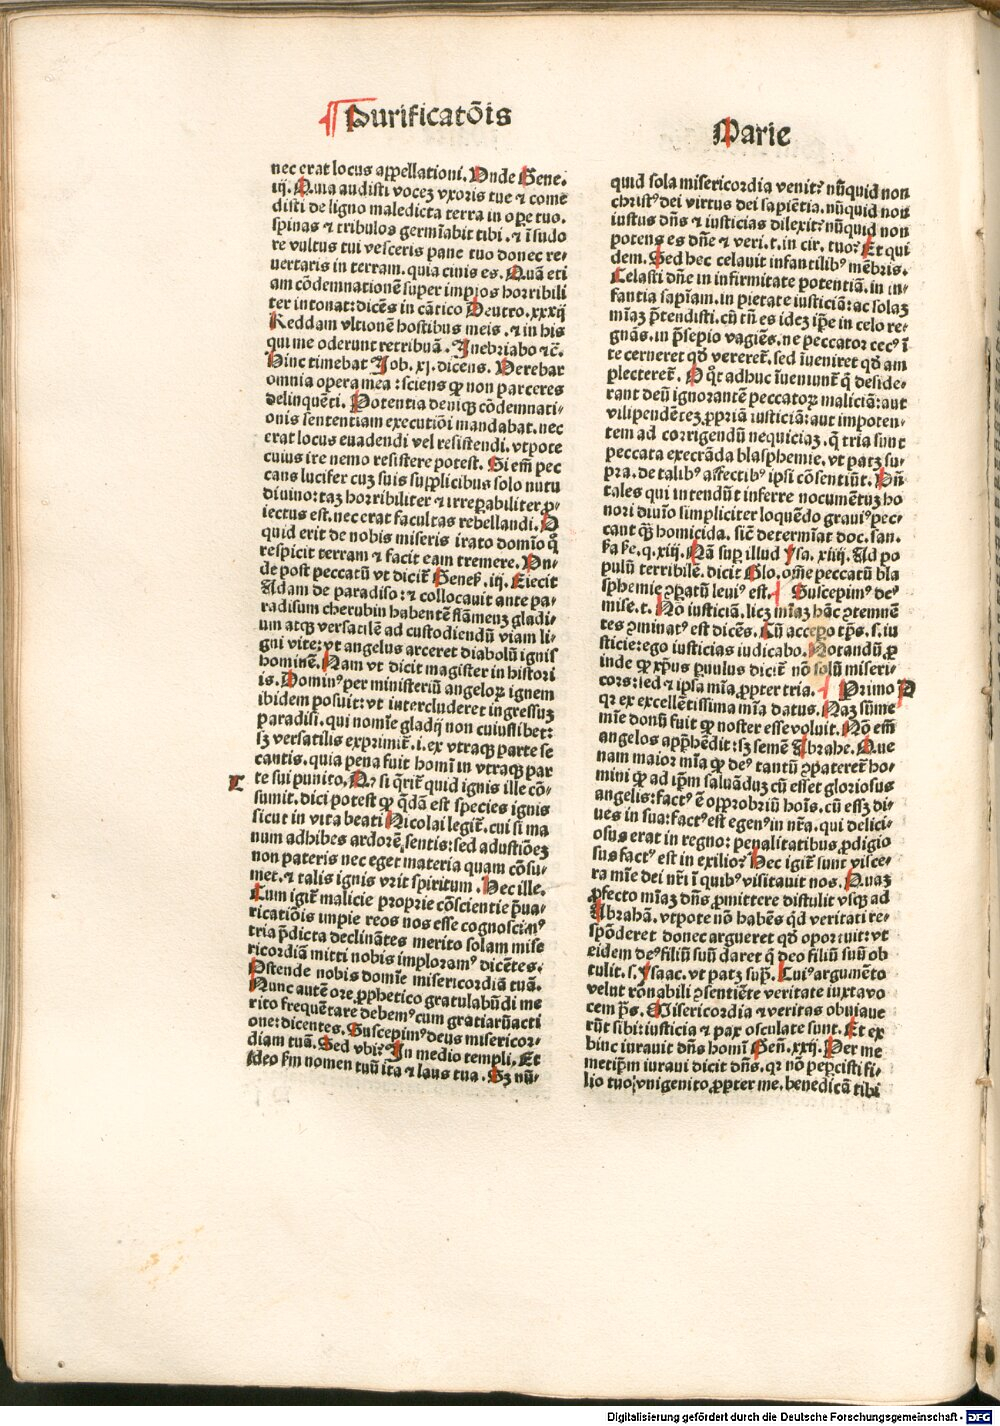 Purificatōis
Marie
nec erat locus appellationi. Unde Gene.
iij. Quia audisti vocez vxoris tue ⁊ come
disti de ligno maledicta terra in ope tuo.
spinas ⁊ tribulos germīabit tibi. ⁊ ī sudo
re vultus tui vesceris pane tuo donec re⸗
uertaris in terram. quia cinis es. Quā eti
am cōdemnationē super impios horribili
ter intonat: dicēs in cātico Deutro. xxxij
Reddam vltionē hostibus meis. ⁊ in his
qui me oderunt retribuā. Inebriabo ⁊c̄.
Hinc timebat Job. xj. dicens. Verebar
omnia opera mea: sciens ꝙ non parceres
delinquēti. Potentia deniqꝫ cōdemnati⸗
onis sententiam executiōi mandabat. nec
erat locus euadendi vel resistendi. vtpote
cuius ire nemo resistere potest. Si em̄ pec
cans lucifer cuꝫ suis supplicibus solo nutu
diuino: taꝫ horribiliter ⁊ irrepabiliter ꝓ⸗
iectus est. nec erat facultas rebellandi. O
quid erit de nobis miseris irato domīo q̄
respicit terram ⁊ facit eam tremere. Vn⸗
de post peccatū vt dicit̄ Genes̄. iij. Eiecit
Adam de paradiso: ⁊ collocauit ante pa⸗
radisum cherubin habentē flāmeuꝫ gladi⸗
um atqꝫ versatilē ad custodiendū viam li⸗
gni vite: vt angelus arceret diabolū ignis
hominē. Nam vt dicit magister in histori
is. Dominꝰ per ministeriū angeloꝝ ignem
ibidem posuit: vt intercluderet ingressuꝫ
paradisi. qui nomīe gladij non cuiuslibet:
sꝫ versatilis exprimit̄. i. ex vtraqꝫ parte se
cantis. quia pena fuit homī in vtraqꝫ par
te sui punito. Qꝫ si q̄rit̄ quid ignis ille cō⸗
sumit. dici potest ꝙ q̄dā est species ignis
sicut in vita beati Nicolai legit̄. cui si ma
num adhibes ardorē sentis: sed adustiōeꝫ
non pateris nec eget materia quam cōsu⸗
met. ⁊ talis ignis vrit spiritum. Hec ille.
Cum igit̄ malicie proprie cōscientie p̄ua⸗
ricatiōis impie reos nos esse cognoscimꝰ
tria p̄dicta declinātes merito solam mise
ricordiā mitti nobis imploramꝰ dicētes.
Ostende nobis domīe misericordiā tuā.
Nunc autē ore ꝓphetico gratulabūdi me
rito frequētare debemꝰ cum gratiarūacti
one: dicentes. Suscepimꝰ deus misericor⸗
diam tuā. Sed vbi? In medio templi. Et
ideo s̄m nomen tuū ita ⁊ laus tua. Sꝫ nū⸗
quid sola misericordia venit? nūquid non
christꝰ dei virtus dei sapiētia. nūquid non
iustus dn̄s ⁊ iusticias dilexit? nūquid non
potens es dn̄e ⁊ veri. t. in cir. tuo? Et qui
dem. Sed hec celauit infantilibꝰ mēbris.
Celasti dn̄e in infirmitate potentiā. in in⸗
fantia sapīam. in pietate iusticiā: ac solaꝫ
mīaꝫ p̄tendisti. cū tn̄ es ideꝫ ip̄e in celo re⸗
gnās. in p̄sepio vagiēs. ne peccator cecꝰ ī
te cerneret qd̄ vereret̄. sed īueniret qd̄ am
plecteret̄. Pq̄t adhuc īuemunt q̄ deside⸗
rant deū ignorantē peccatoꝝ maliciā: aut
vilipendētez ꝓpriā iusticiā: aut impoten⸗
tem ad corrigendū nequiciaꝫ. q̄ tria sunt
peccata execrāda blasphemie. vt patꝫ su⸗
pra. de talibꝰ affectibꝰ ipsi cōsentiūt. Vn̄
tales qui intendūt inferre nocumētuꝫ ho
nori diuīo simpliciter loquēdo grauiꝰ pec⸗
cant q̄ꝫ homicida. sic̄ determīat doc. san.
s̄a s̄e. q. xiij. Nā sup illud ysa. xiiij. Ad po
pulū terribilē. dicit Glo. om̄e peccatū bla
sphemie ꝯpatū leuiꝰ est. Suscepimꝰ deꝰ
mise. t. Nō iusticiā. licꝫ mīaꝫ hāc ꝯtemnē
tes ꝯminatꝰ est dicēs. Cū accepo tp̄s. s. iu
sticie: ego iusticias iudicabo. Notandū ꝓ
inde ꝙ xp̄us puulus dicit̄ nō solū miseri⸗
cors: sed ⁊ ipsa mīa ꝓpter tria. Primo
P
qꝛ ex excellētissima mīa datus. Naꝫ sūme
mīe donū fuit ꝙ noster esse voluit. Nō em̄
angelos app̄hēdit: sꝫ semē Abrahe. Que
nam maior mīa ꝙ deꝰ tantū ꝯpateret̄ ho⸗
mini ꝙ ad ip̄m saluāduꝫ cū esset gloriosus
angelis: factꝰ ē opprobriū hoīs. cū essꝫ di⸗
ues in sua: factꝰ est egenꝰ in nr̄a. qui delici⸗
osus erat in regno: penalitatibus ꝓdigio
sus factꝰ est in exilio? Hec igit̄ sunt visce⸗
ra mīe dei nr̄i ī quibꝰ visitauit nos. Quaꝫ
ꝓfecto mīaꝫ dn̄s ꝓmittere distulit vsqꝫ ad
Abrahā. vtpote nō habēs qd̄ veritati re⸗
spōderet donec argueret qd̄ oportuit: vt
eidem deꝰ filiū suū daret q̄ deo filiū suū ob
tulit. s. Ysaac. vt patꝫ sup̄. Cuiꝰ argumēto
velut rōnabili ꝯsentiēte veritate iuxta vo
cem p̄s. Misericordia ⁊ veritas obuiaue
rūt sibi: iusticia ⁊ pax osculate sunt. Et ex
hinc iurauit dn̄s homī Gen̄. xxij. Per me
metip̄m iuraui dicit dn̄s. qꝛ nō pepcisti fi⸗
lio tuo vnigenito ꝓpter me. benedicā tibi
Digitalisierung gefördert durch die Deutsche Forschungsgemeinschaft - DFG